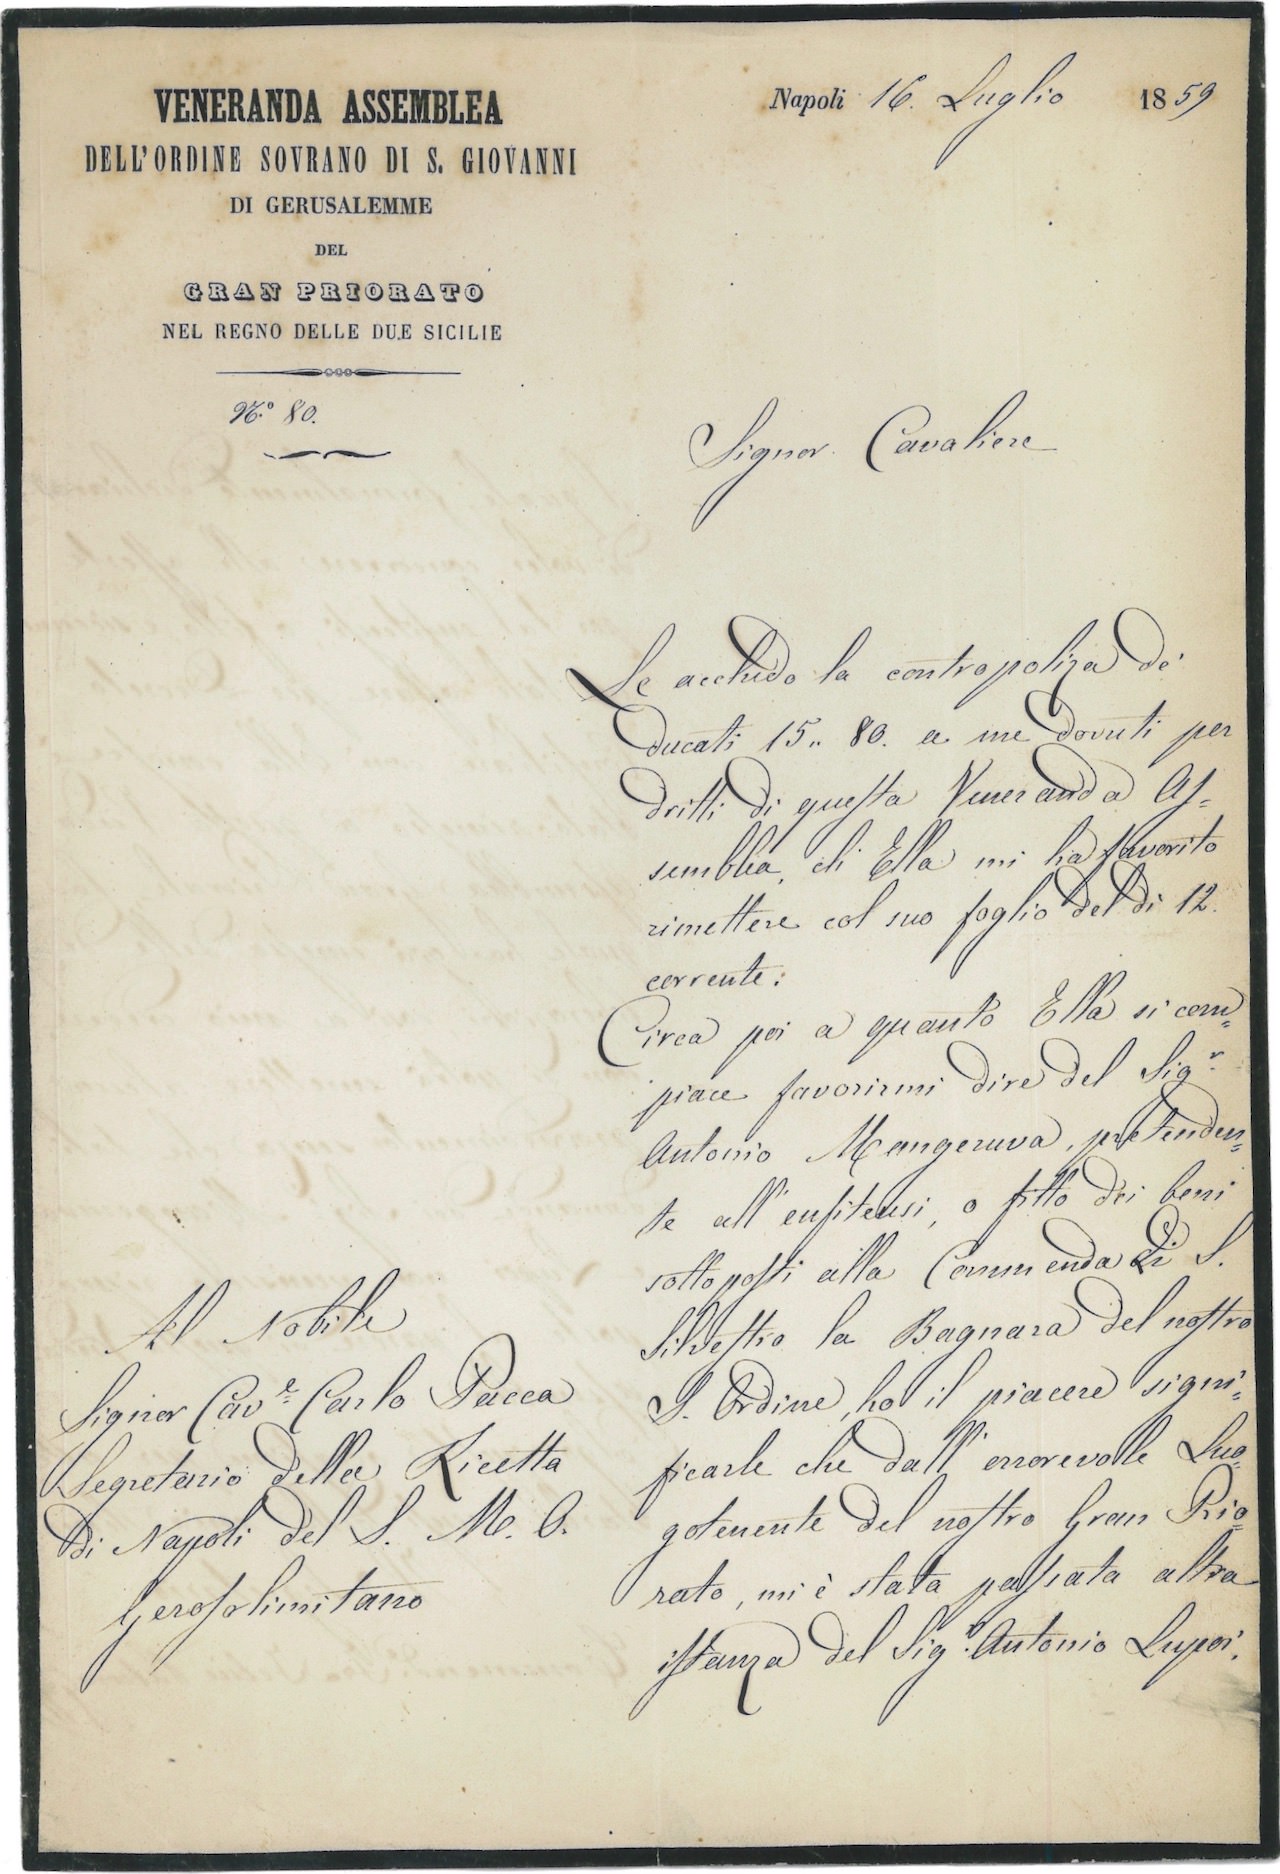 VENERANDA ASSEMBLEA
DELL'ORDINE SOVRANO DI S. GIOVANNI
DI GERUSALEMME
DEL
GRAN PRIORATO
NEL REGNO DELLE DUE SICILIE
N.º 80.
Napoli 16. Luglio 1859
Signor Cavaliere
Le acchiudo la contropoliza de'
ducati 15.. 80. a me dovuti per
dritti di questa Veneranda As=
semblea, ch' Ella mi ha favorito
rimettere col suo foglio del dì 12.
corrente:
Circa poi a quanto Ella si com=
piace favorirmi dire del Sig.r
Antonio Mangeruva, pretenden=
te all' enfiteusi, o fitto dei beni
sottoposti alla Commenda di S.
Silvestro la Bagnara del nostro
S. Ordine, ho il piacere signi=
ficarle che dall' onorevole Luo=
gotenente del nostro Gran Prio=
rato, mi è stata passata altra
istanza del Sig.r Antonio Lupoi,
Al Nobile
Signor Cav.e Carlo Pacca
Segretario della Ricetta
di Napoli del S. M. O.
Gerosolimitano